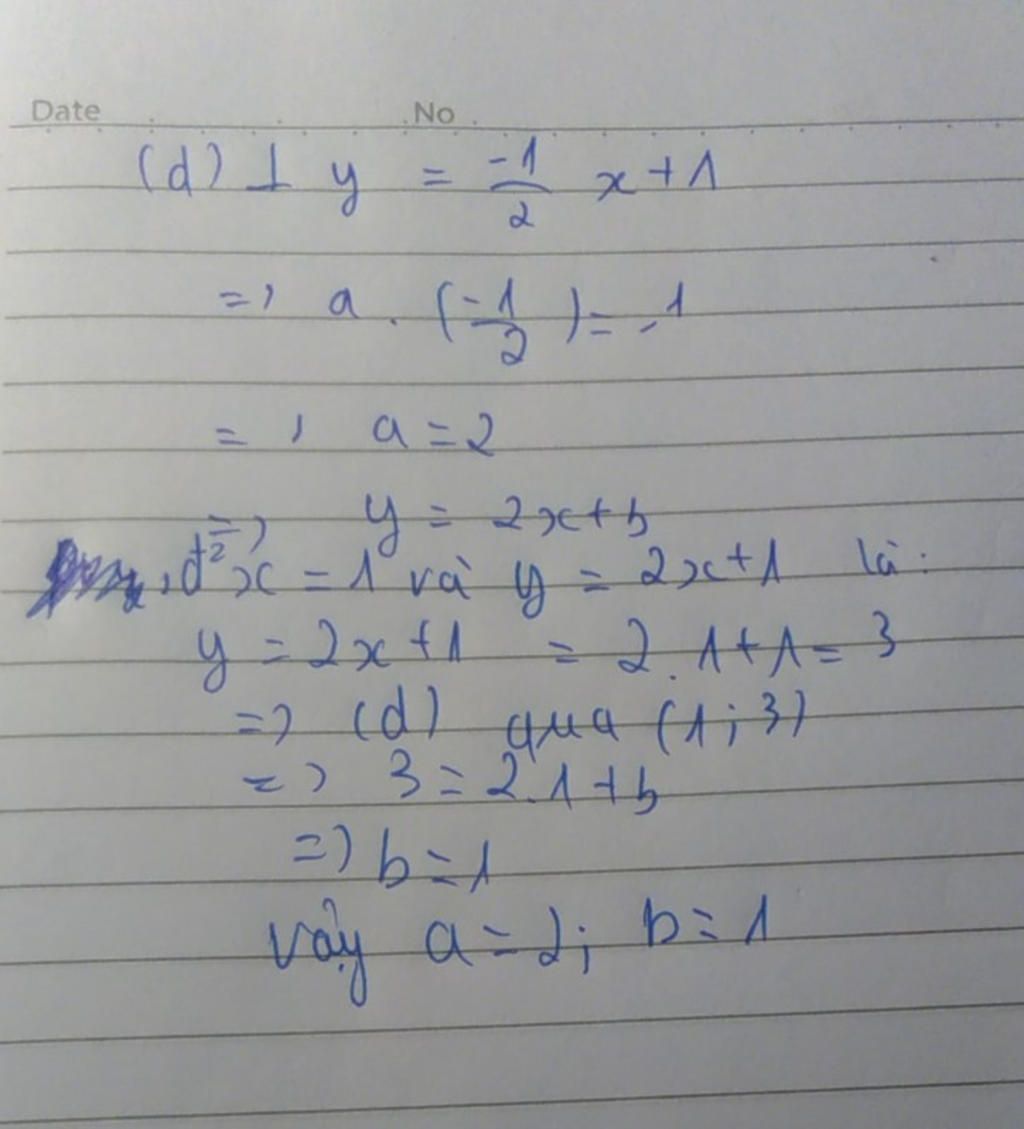 Date No
(d) ⊥ y = -1/2 x + 1
=> a . (-1/2) = -1
=> a = 2
=> y = 2x + b
x = 1 và y = 2x + 1 là :
y = 2x + 1 = 2 . 1 + 1 = 3
=> (d) qua (1 ; 3)
=> 3 = 2.1 + b
=> b = 1
vậy a = 2; b = 1